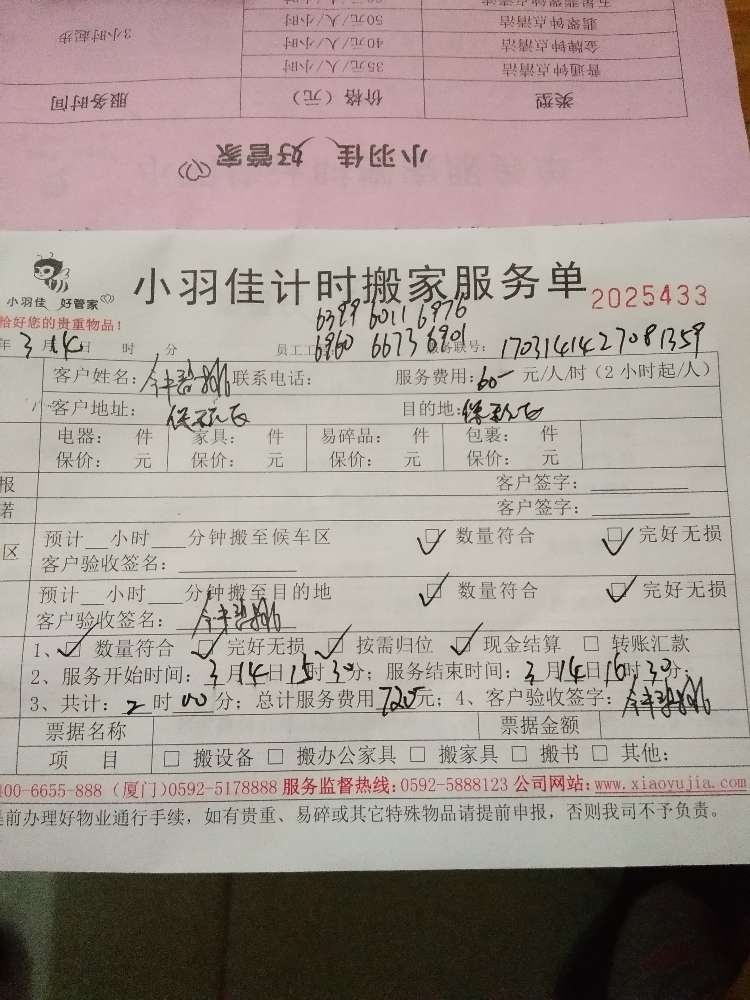 五星翡翠钟点清洁
翡翠钟点清洁 50元/人/小时
金牌钟点清洁 40元/人/小时 3小时起步
普通钟点清洁 35元/人/小时
类型 价格（元） 服务时间
小羽佳 好管家
小羽佳计时搬家服务单 2025433
小羽佳 好管家
恰好您的贵重物品！
6399 6011 6976
6960 6673 6901
年 3月14日 时 分 员工工 服务联号： 1703141427081359
客户姓名： 联系电话： 服务费用：60 元/人/时（2小时起/人）
客户地址： 目的地：
电器： 件 家具： 件 易碎品： 件 包裹： 件
保价： 元 保价： 元 保价： 元 保价： 元
报 客户签字：
诺 客户签字：
区 预计__小时___分钟搬至候车区 □ 数量符合 □ 完好无损
客户验收签名：
预计__小时___分钟搬至目的地 □ 数量符合 □ 完好无损
客户验收签名：
1、□ 数量符合 □ 完好无损 □ 按需归位 □ 现金结算 □ 转账汇款
2、服务开始时间：3月14日15时30分；服务结束时间：3月14日16时30分；
3、共计：2时00分；总计服务费用720元；4、客户验收签字：
票据名称 票据金额
项 目 □ 搬设备 □ 搬办公家具 □ 搬家具 □ 搬书 □ 其他：
00-6655-888（厦门）0592-5178888 服务监督热线：0592-5888123 公司网站：www.xiaoyujia.com
前办理好物业通行手续，如有贵重、易碎或其它特殊物品请提前申报，否则我司不予负责。